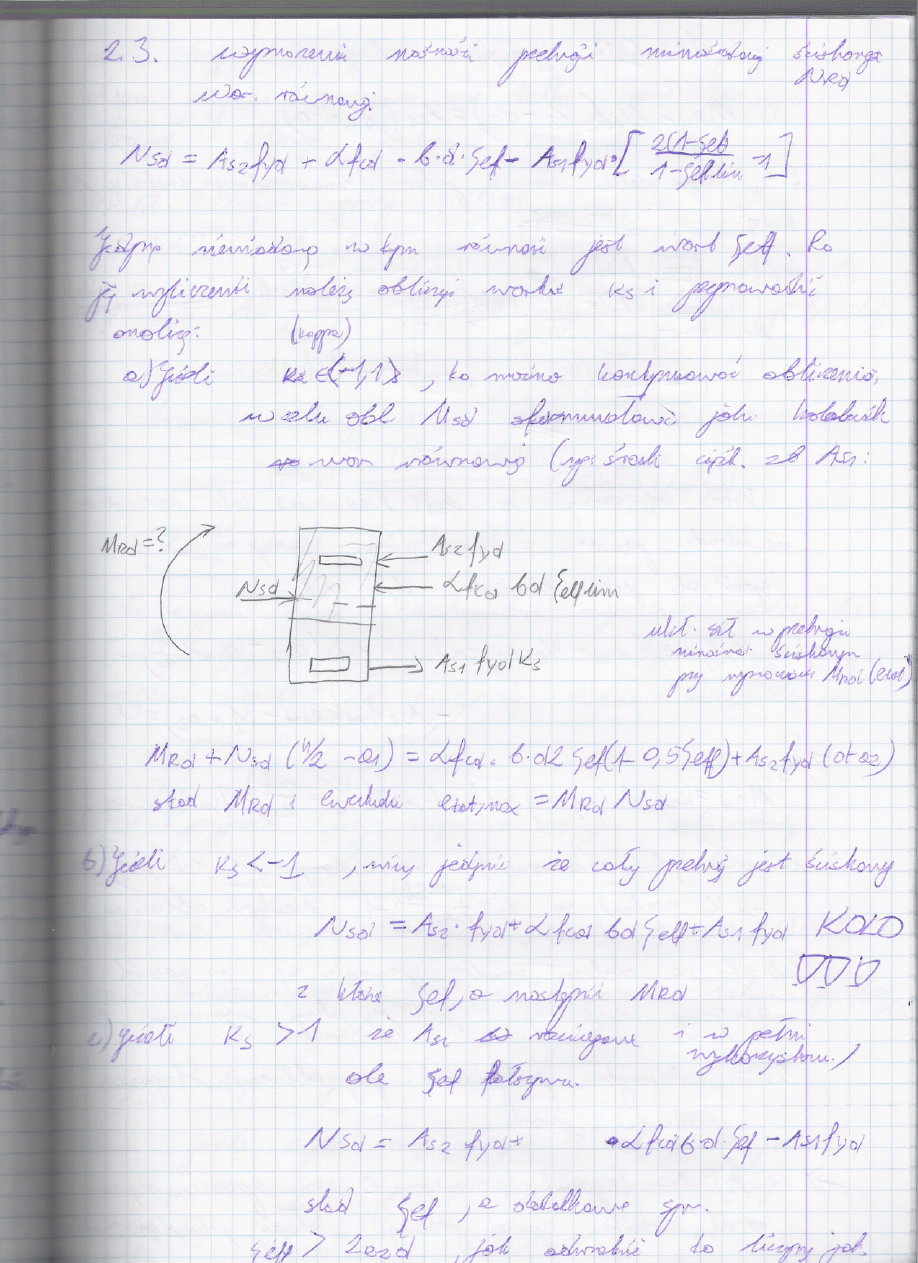 2.3. wyznaczenie nośności przekroju mimośrodowo ściskanego
NRd
war. równowagi
NSd = As2 fyd + αfcd · b·d·ξeff - As1 fyd·[2(1-ξeff)/(1-ξeff,lim) -1]
Jedyną niewiadomą w tym równości jest wart ξeff. Po
jej wyliczeniu należy obliczyć wartość κs i przeprowadzić
analizę: (kappa)
a) Jeżeli κs ∈(-1,1>, to można kontynuować obliczenia,
w celu obl MSd sformułować
war równowagi As1:
MRd=?
As2 fyd
NSd
αfcd bd ξeff lim
ukł. sił w przekroju
mimośrod. ściskanym
przy wyznaczaniu MRd (etot)
As1 fyd κs
MRd + NSd (h/2 -a1) = αfcd · b·d2 ξeff(1-0,5ξeff)+As2 fyd (d-a2)
stąd MRd i ewentualnie etot,max = MRd NSd
b) Jeżeli κs <-1, że cały przekrój jest ściskany
NSd = As2· fyd+ αfcd bd ξeff+As1 fyd KOLO
z której ξeff, a następnie MRd
c) Jeżeli κs >1 że As1 rozciągane i w pełni
wykorzystane
ale ξeff
NSd = As2 fyd+ αfcd b·d·ξeff - As1 fyd
stąd ξeff, a dodatkowo spr.
ξeff > 2a2/d, jak to liczymy jak